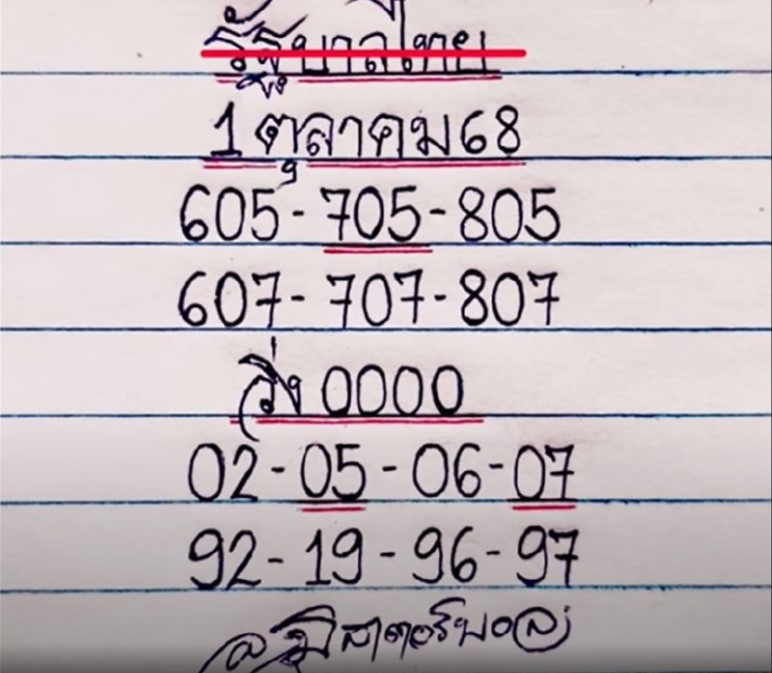 รัฐบาลไทย
1 ตุลาคม 68
605-705-805
607-707-807
วิ่ง 0000
02-05-06-07
92-19-96-97